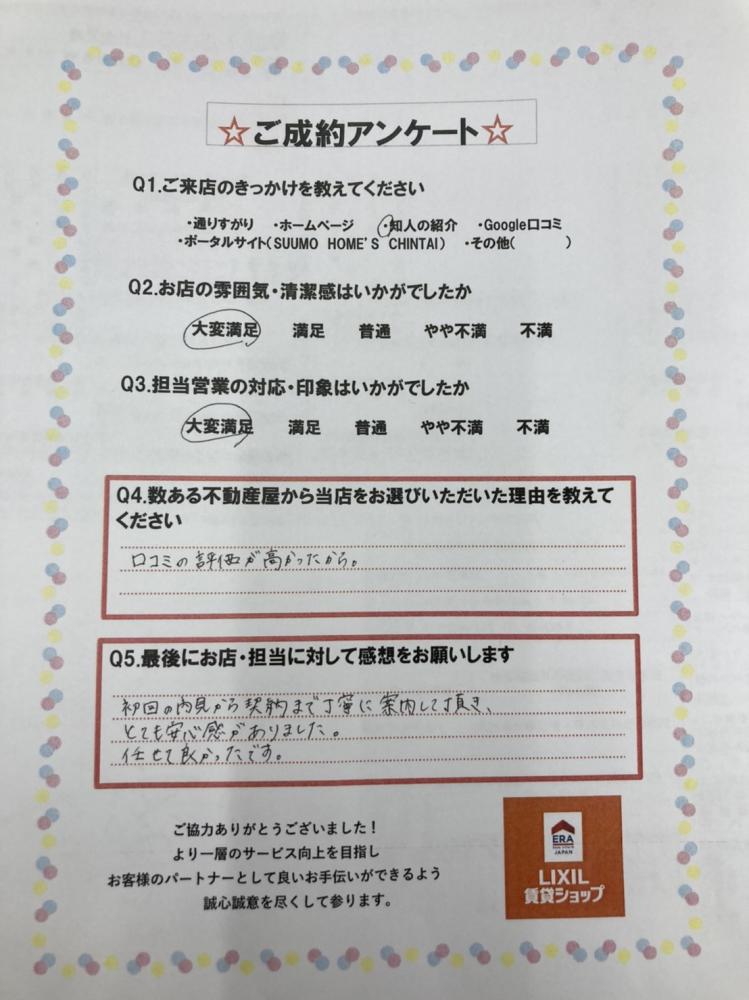 ☆ご成約アンケート☆
Q1.ご来店のきっかけを教えてください
・通りすがり ・ホームページ ・知人の紹介 ・Google口コミ
・ポータルサイト(SUUMO HOME'S CHINTAI) ・その他( )
Q2.お店の雰囲気・清潔感はいかがでしたか
大変満足 満足 普通 やや不満 不満
Q3.担当営業の対応・印象はいかがでしたか
大変満足 満足 普通 やや不満 不満
Q4.数ある不動産屋から当店をお選びいただいた理由を教えて
ください
口コミの評価が高かったから。
Q5.最後にお店・担当に対して感想をお願いします
初回の内見から契約まで丁寧に案内して頂き、
とても安心感がありました。
任せて良かったです。
ご協力ありがとうございました！
より一層のサービス向上を目指し
お客様のパートナーとして良いお手伝いができるよう
誠心誠意を尽くして参ります。
ERA
REAL ESTATE
JAPAN
LIXIL
賃貸ショップ